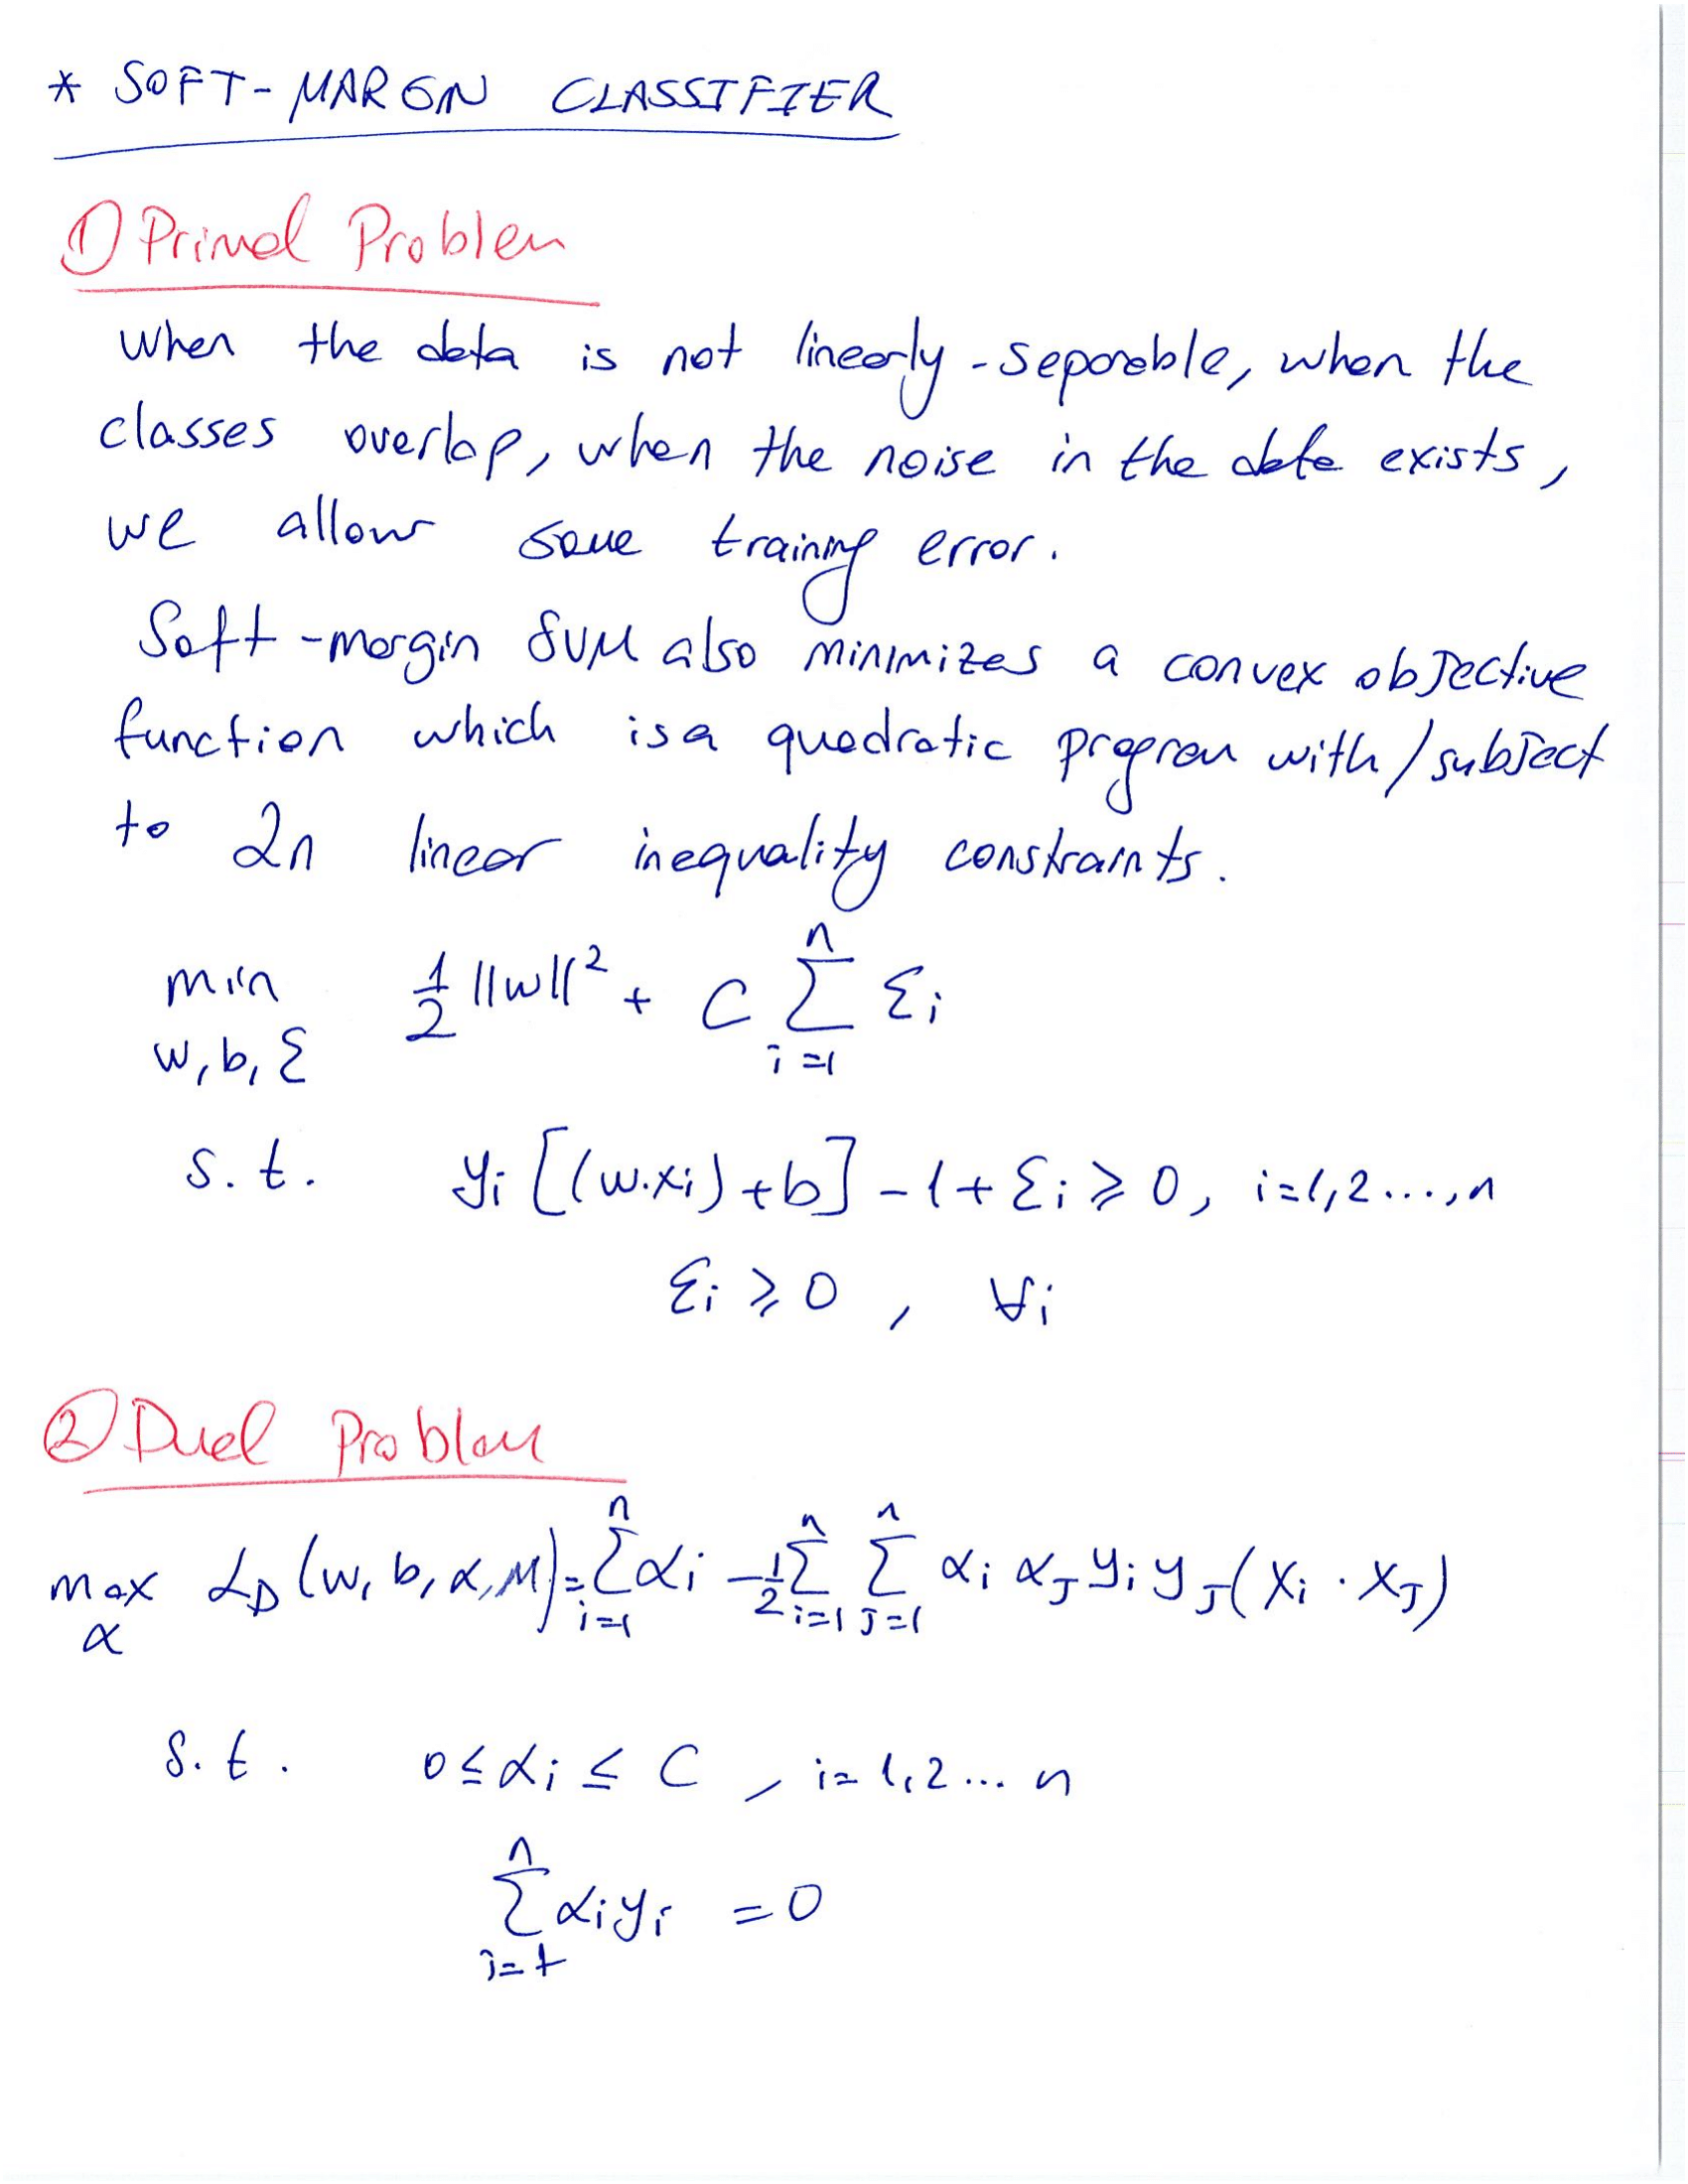 * SOFT-MARGIN CLASSIFIER
① Primal Problem
When the data is not linearly-separable, when the
classes overlap, when the noise in the data exists,
we allow some training error.
Soft-margin SVM also minimizes a convex objective
function which is a quadratic program with/subject
to 2n linear inequality constraints.
min w,b,ξ ½ ||w||² + C Σ_{i=1}^{n} ξi
s.t. yi [(w.xi) + b] - 1 + ξi ≥ 0, i=1,2...,n
ξi ≥ 0, ∀i
② Dual Problem
max α L_D (w,b,α,μ) = Σ_{i=1}^{n} αi - ½ Σ_{i=1}^{n} Σ_{j=1}^{n} αi αj yi yj (xi · xj)
s.t. 0 ≤ αi ≤ C, i=1,2...n
Σ_{i=1}^{n} αi yi = 0